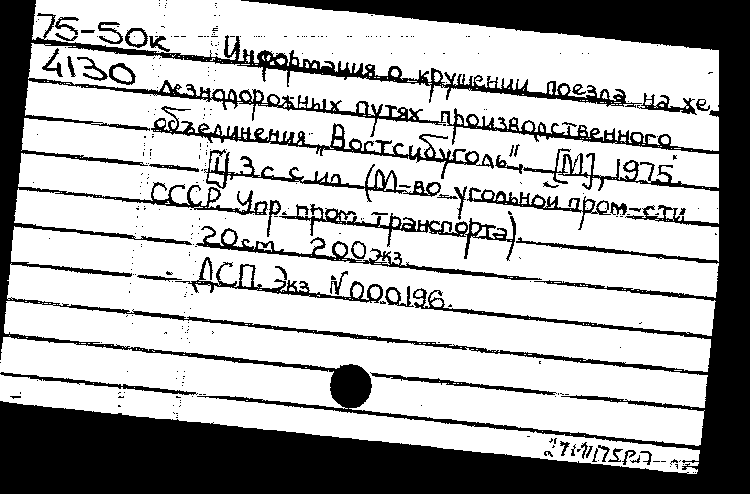 75-50к
4130
Информация о крушении поезда на же
лезнодорожных путях производственного
объединения „Востсибуголь", [М], 1975.
[1], 3 с. с ил. (М-во угольной пром-сти
СССР. Упр. пром. транспорта).
20 см. 200 экз.
ДСП. Экз. N 000196.